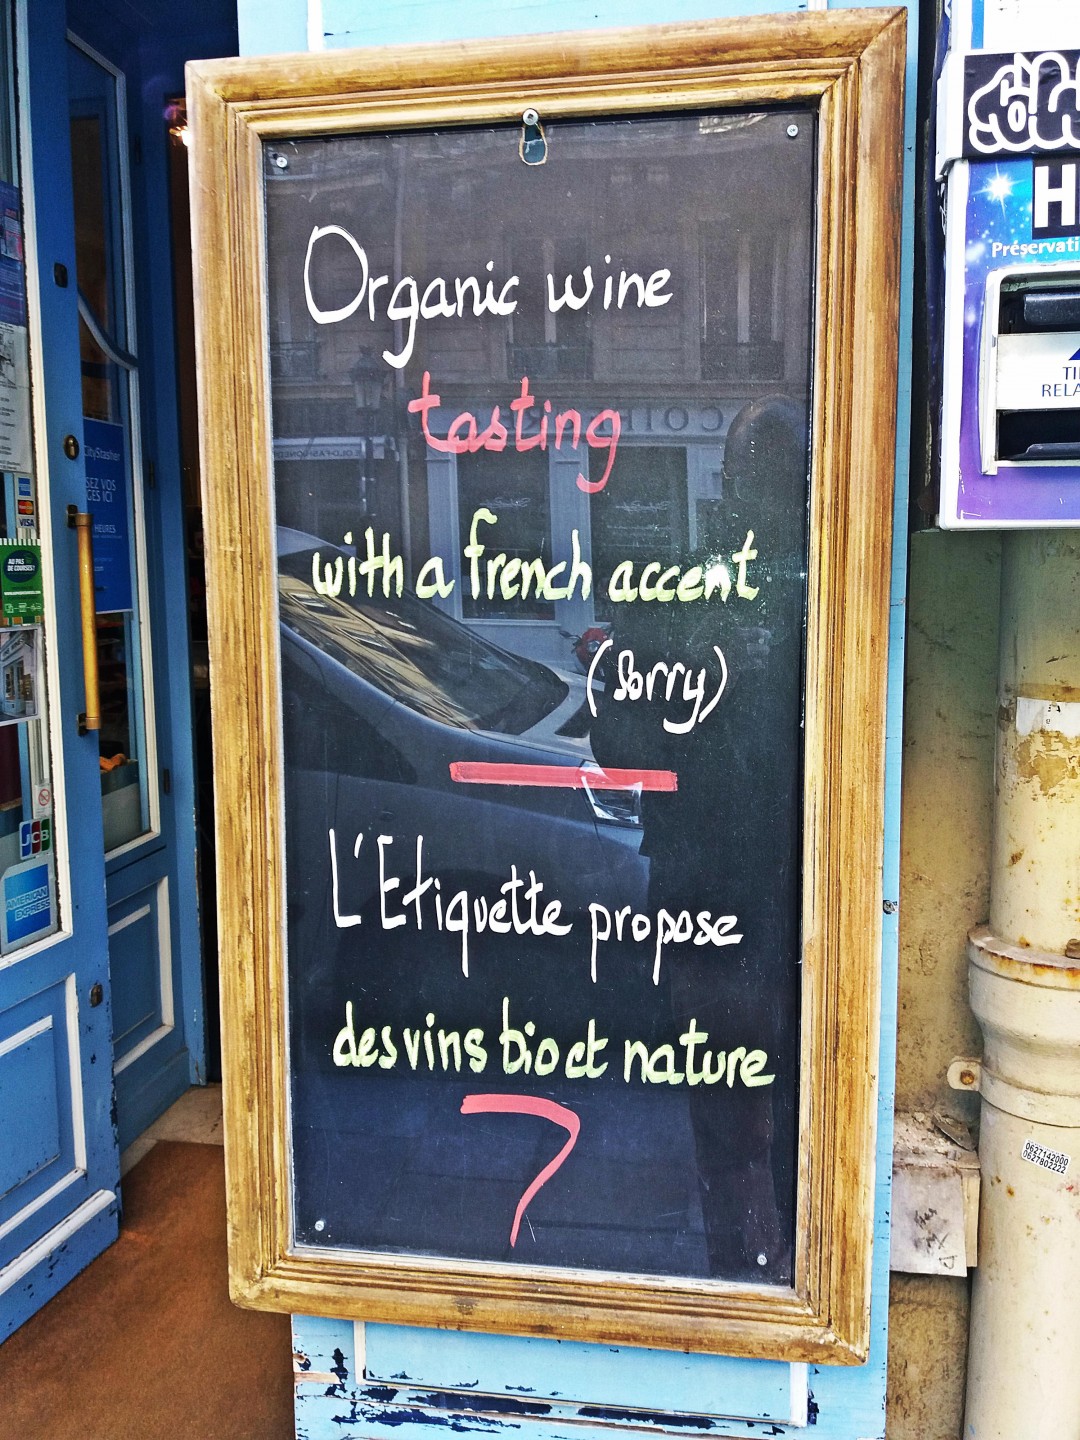 Organic wine
tasting
with a french accent
(Sorry)
L'Etiquette propose
des vins bio et nature
CityStasher
HEURES
VISA
AU PAS
DE COURSES!
JCB
AMERICAN
EXPRESS
H
Préservati
TI
RELA
0627142000
0627802222